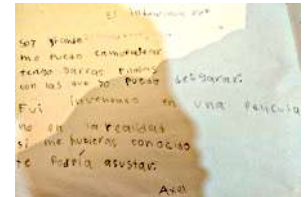 El Indominus rex
soy grande
me puedo camuflajear
tengo garras filosas
con las que yo puedo desgarar.
Fui inventado en una película
no en la realidad
si me hubieras conocido
te podría asustar.
Axel